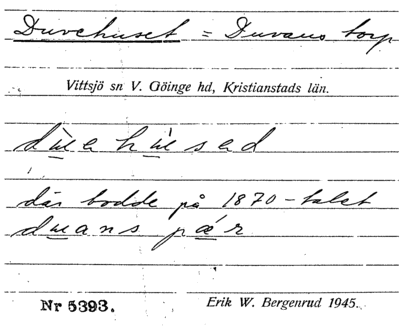 Duvehuset = Duvans torp
Vittsjö sn V. Göinge hd, Kristianstads län.
där bodde på 1870-talet
Nr 5393.
Erik W. Bergenrud 1945.